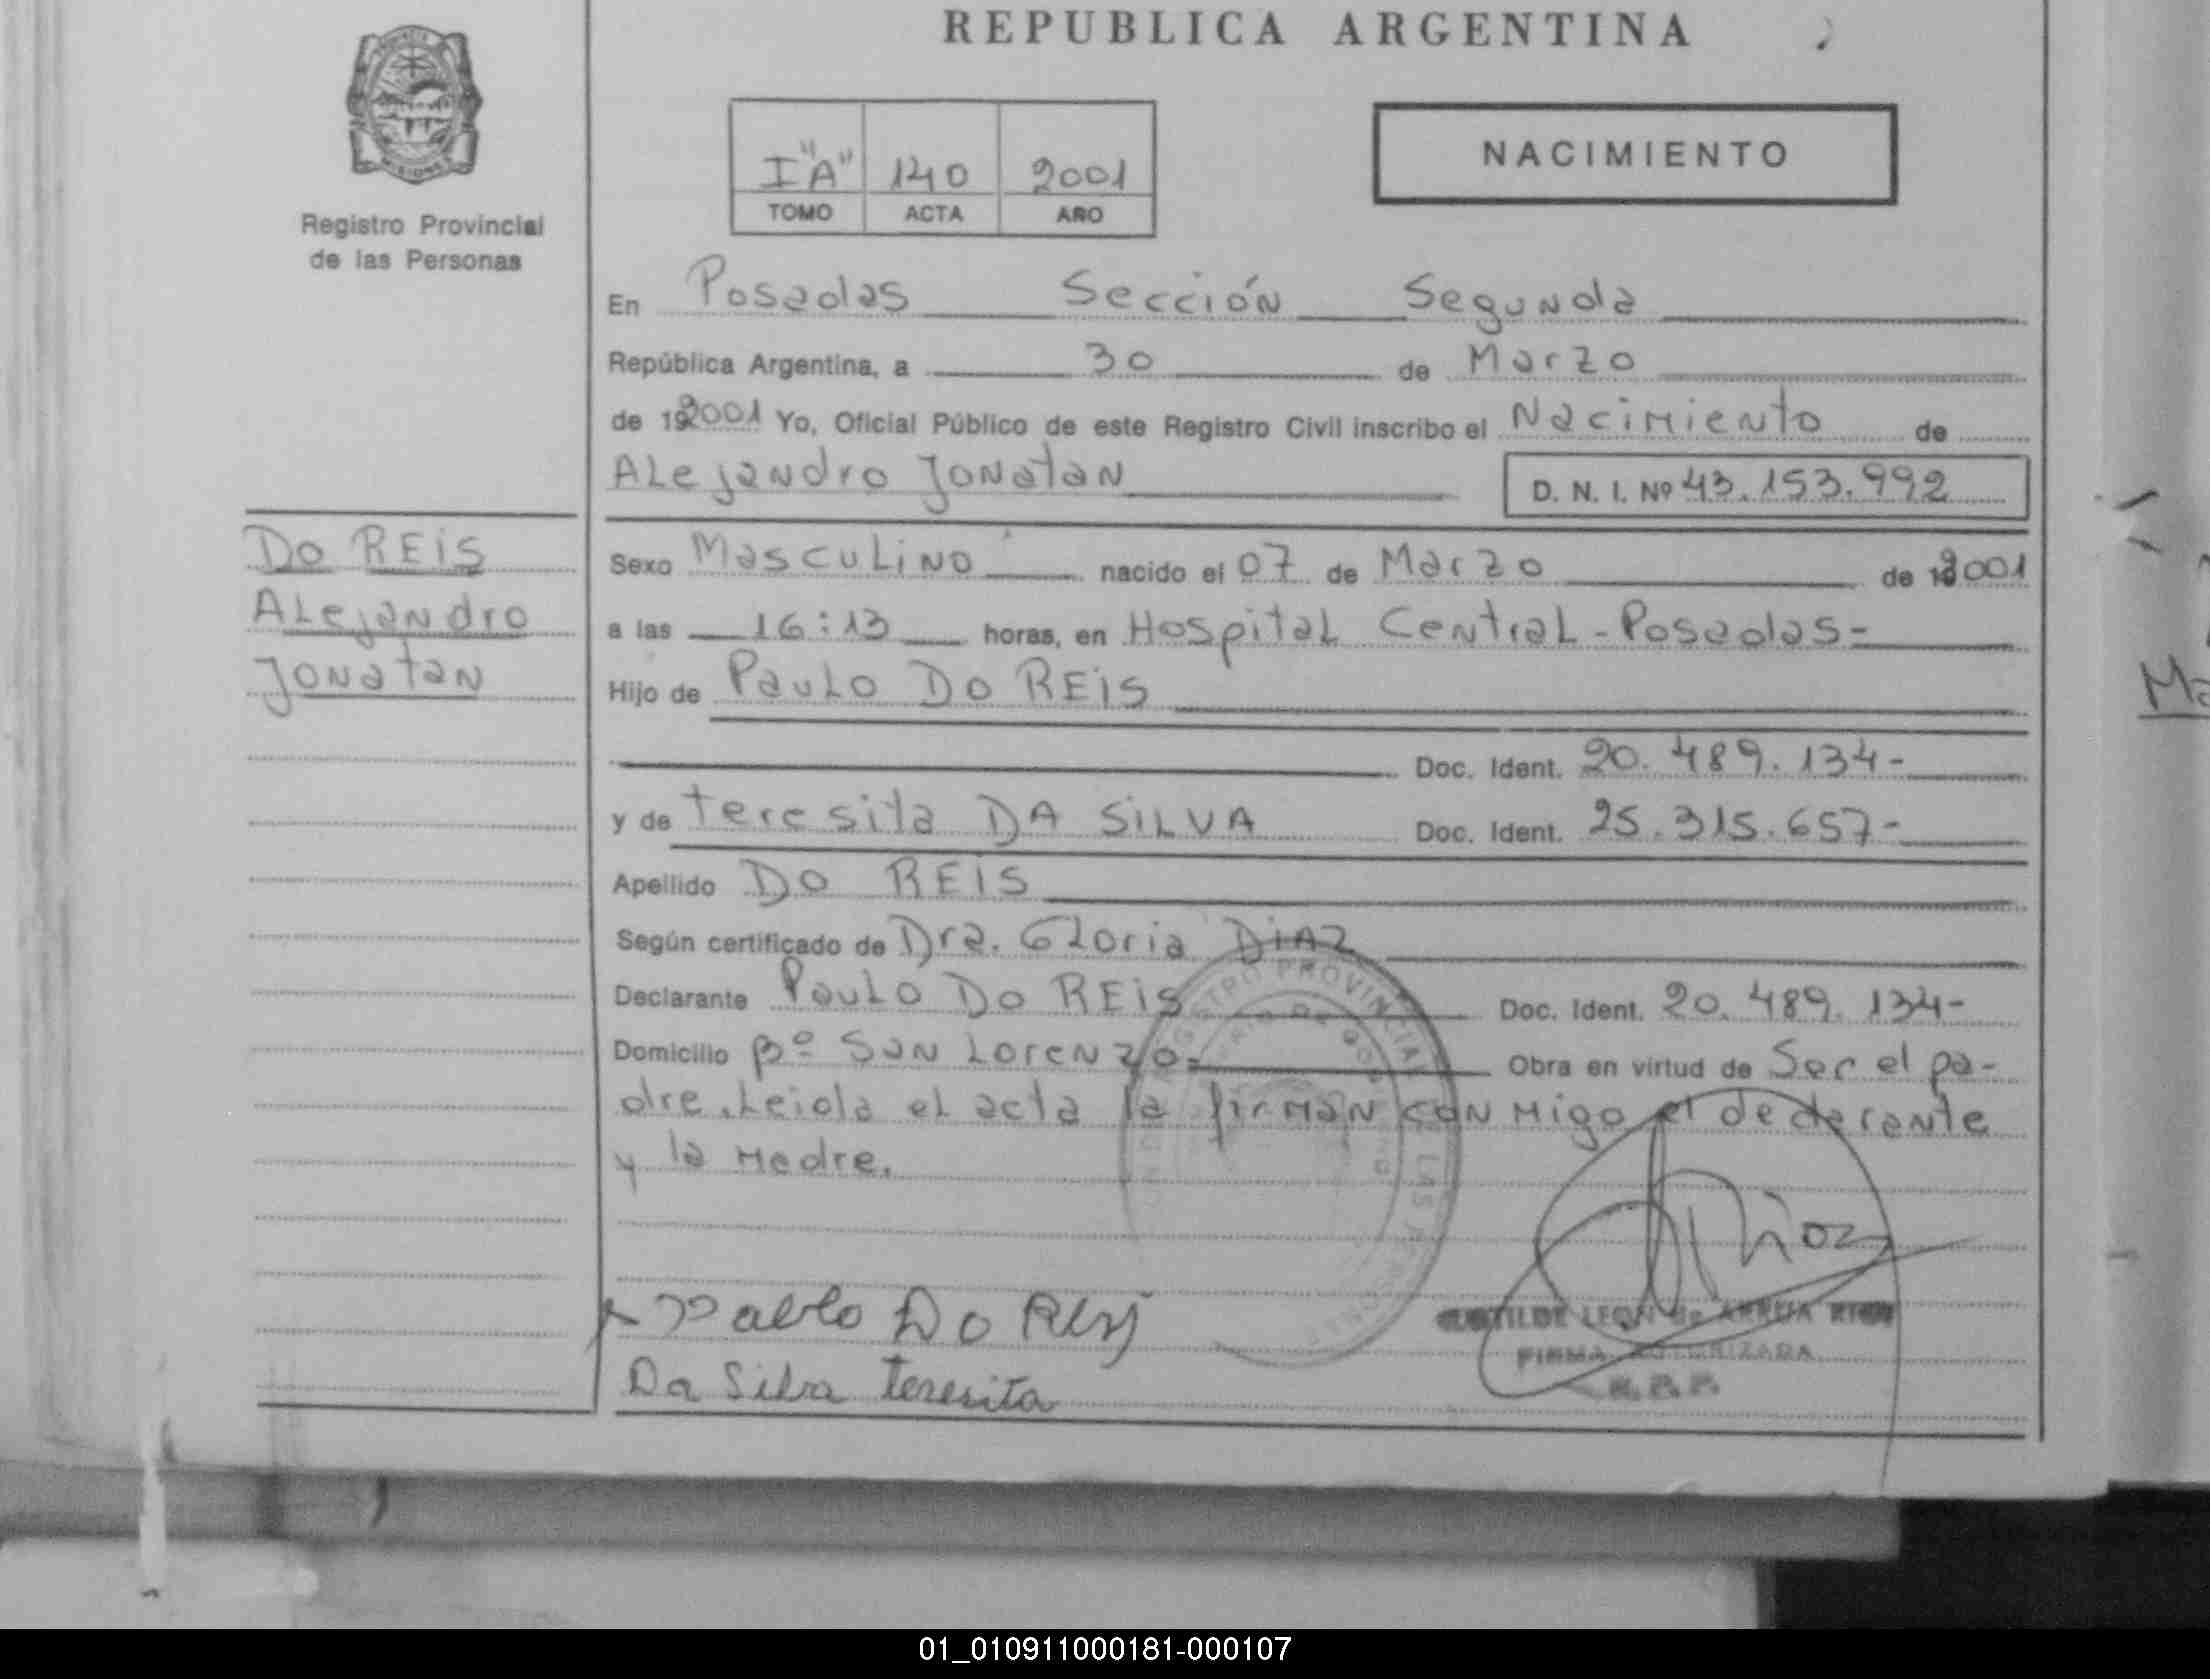 REPUBLICA ARGENTINA
PROVINCIA
MISIONES
Registro Provincial
de las Personas
I "A" 140 2001
TOMO ACTA AÑO
NACIMIENTO
En Posadas Sección Segunda
República Argentina, a 30 de Marzo
de 192001 Yo, Oficial Público de este Registro Civil inscribo el Nacimiento de
Alejandro Jonatan D. N. I. Nº 43.153.992
DO REIS
Alejandro
Jonatan
Sexo Masculino nacido el 07 de Marzo de 2001
a las 16:13 horas, en Hospital Central - Posadas-
Hijo de Paulo DO REIS
Doc. Ident. 20.489.134-
y de teresita DA SILVA Doc. Ident. 25.315.657-
Apellido DO REIS
Según certificado de Dra. Gloria DIAZ
Declarante Paulo DO REIS Doc. Ident. 20.489.134-
Domicilio Bº San Lorenzo- Obra en virtud de Ser el pa-
dre. Leida el acta la firman conmigo el declarante
y la Madre.
REGISTRO PROVINCIAL DE LAS PERSONAS
Pablo Do Reis
Da Silva Teresita
CLOTILDE LEON de ARRUA
FIRMA AUTORIZADA
R.P.P.
Ma
01_010911000181-000107